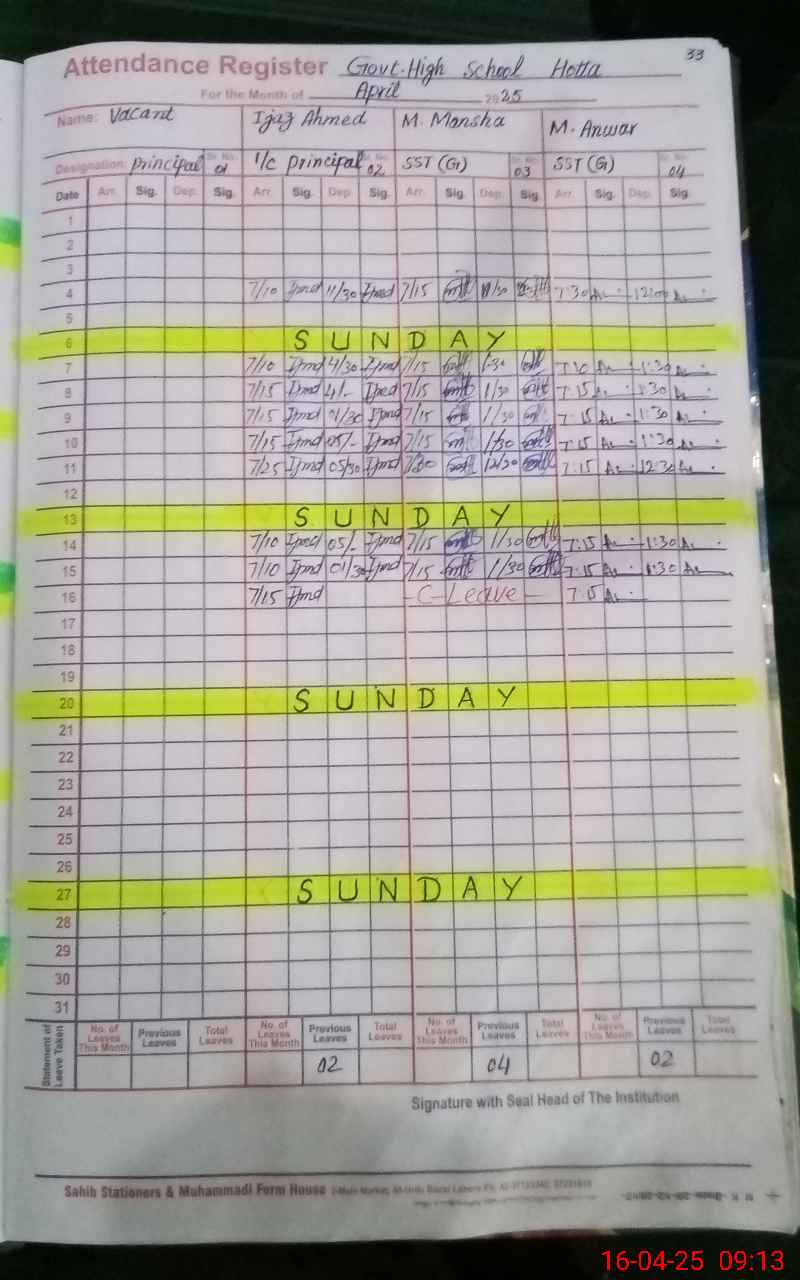 33
Attendance Register Govt. High School Hotta
For the Month of April 2025
Name: Vacant Ijaz Ahmed M. Mansha M. Anwar
Designation: principal Sr. No. 01 I/C principal Sr. No. 02 SST (G) Sr. No. 03 SST (G) Sr. No. 04
Date Arr. Sig. Dep. Sig. Arr. Sig. Dep. Sig. Arr. Sig. Dep. Sig. Arr. Sig. Dep. Sig.
1
2
3
4 7/10 11/30 7/15 11/30 7:30 12:00
5
6 SUNDAY
7 7/10 4/30 7/15 1:30
8 7/15 4/- 7/15 1/30 7:15 1:30
9 7/15 7/15 1/30 7:15 1:30
10 7/15 05/- 7/15 1/30 7:15 1:30
11 7/25 05/30 7/30 12/30 7:15 12:30
12
13 SUNDAY
14 7/10 05/- 7/15 1/30 7:15 1:30
15 7/10 01/30 7/15 1/30 7:15 1:30
16 7/15 - C-Leave - 7:15
17
18
19
20 SUNDAY
21
22
23
24
25
26
27 SUNDAY
28
29
30
31
Statement of Leave Taken
No. of Leaves This Month Previous Leaves Total Leaves No. of Leaves This Month Previous Leaves Total Leaves No. of Leaves This Month Previous Leaves Total Leaves No. of Leaves This Month Previous Leaves Total Leaves
02 04 02
Signature with Seal Head of The Institution
Sahib Stationers & Muhammadi Form House
16-04-25 09:13